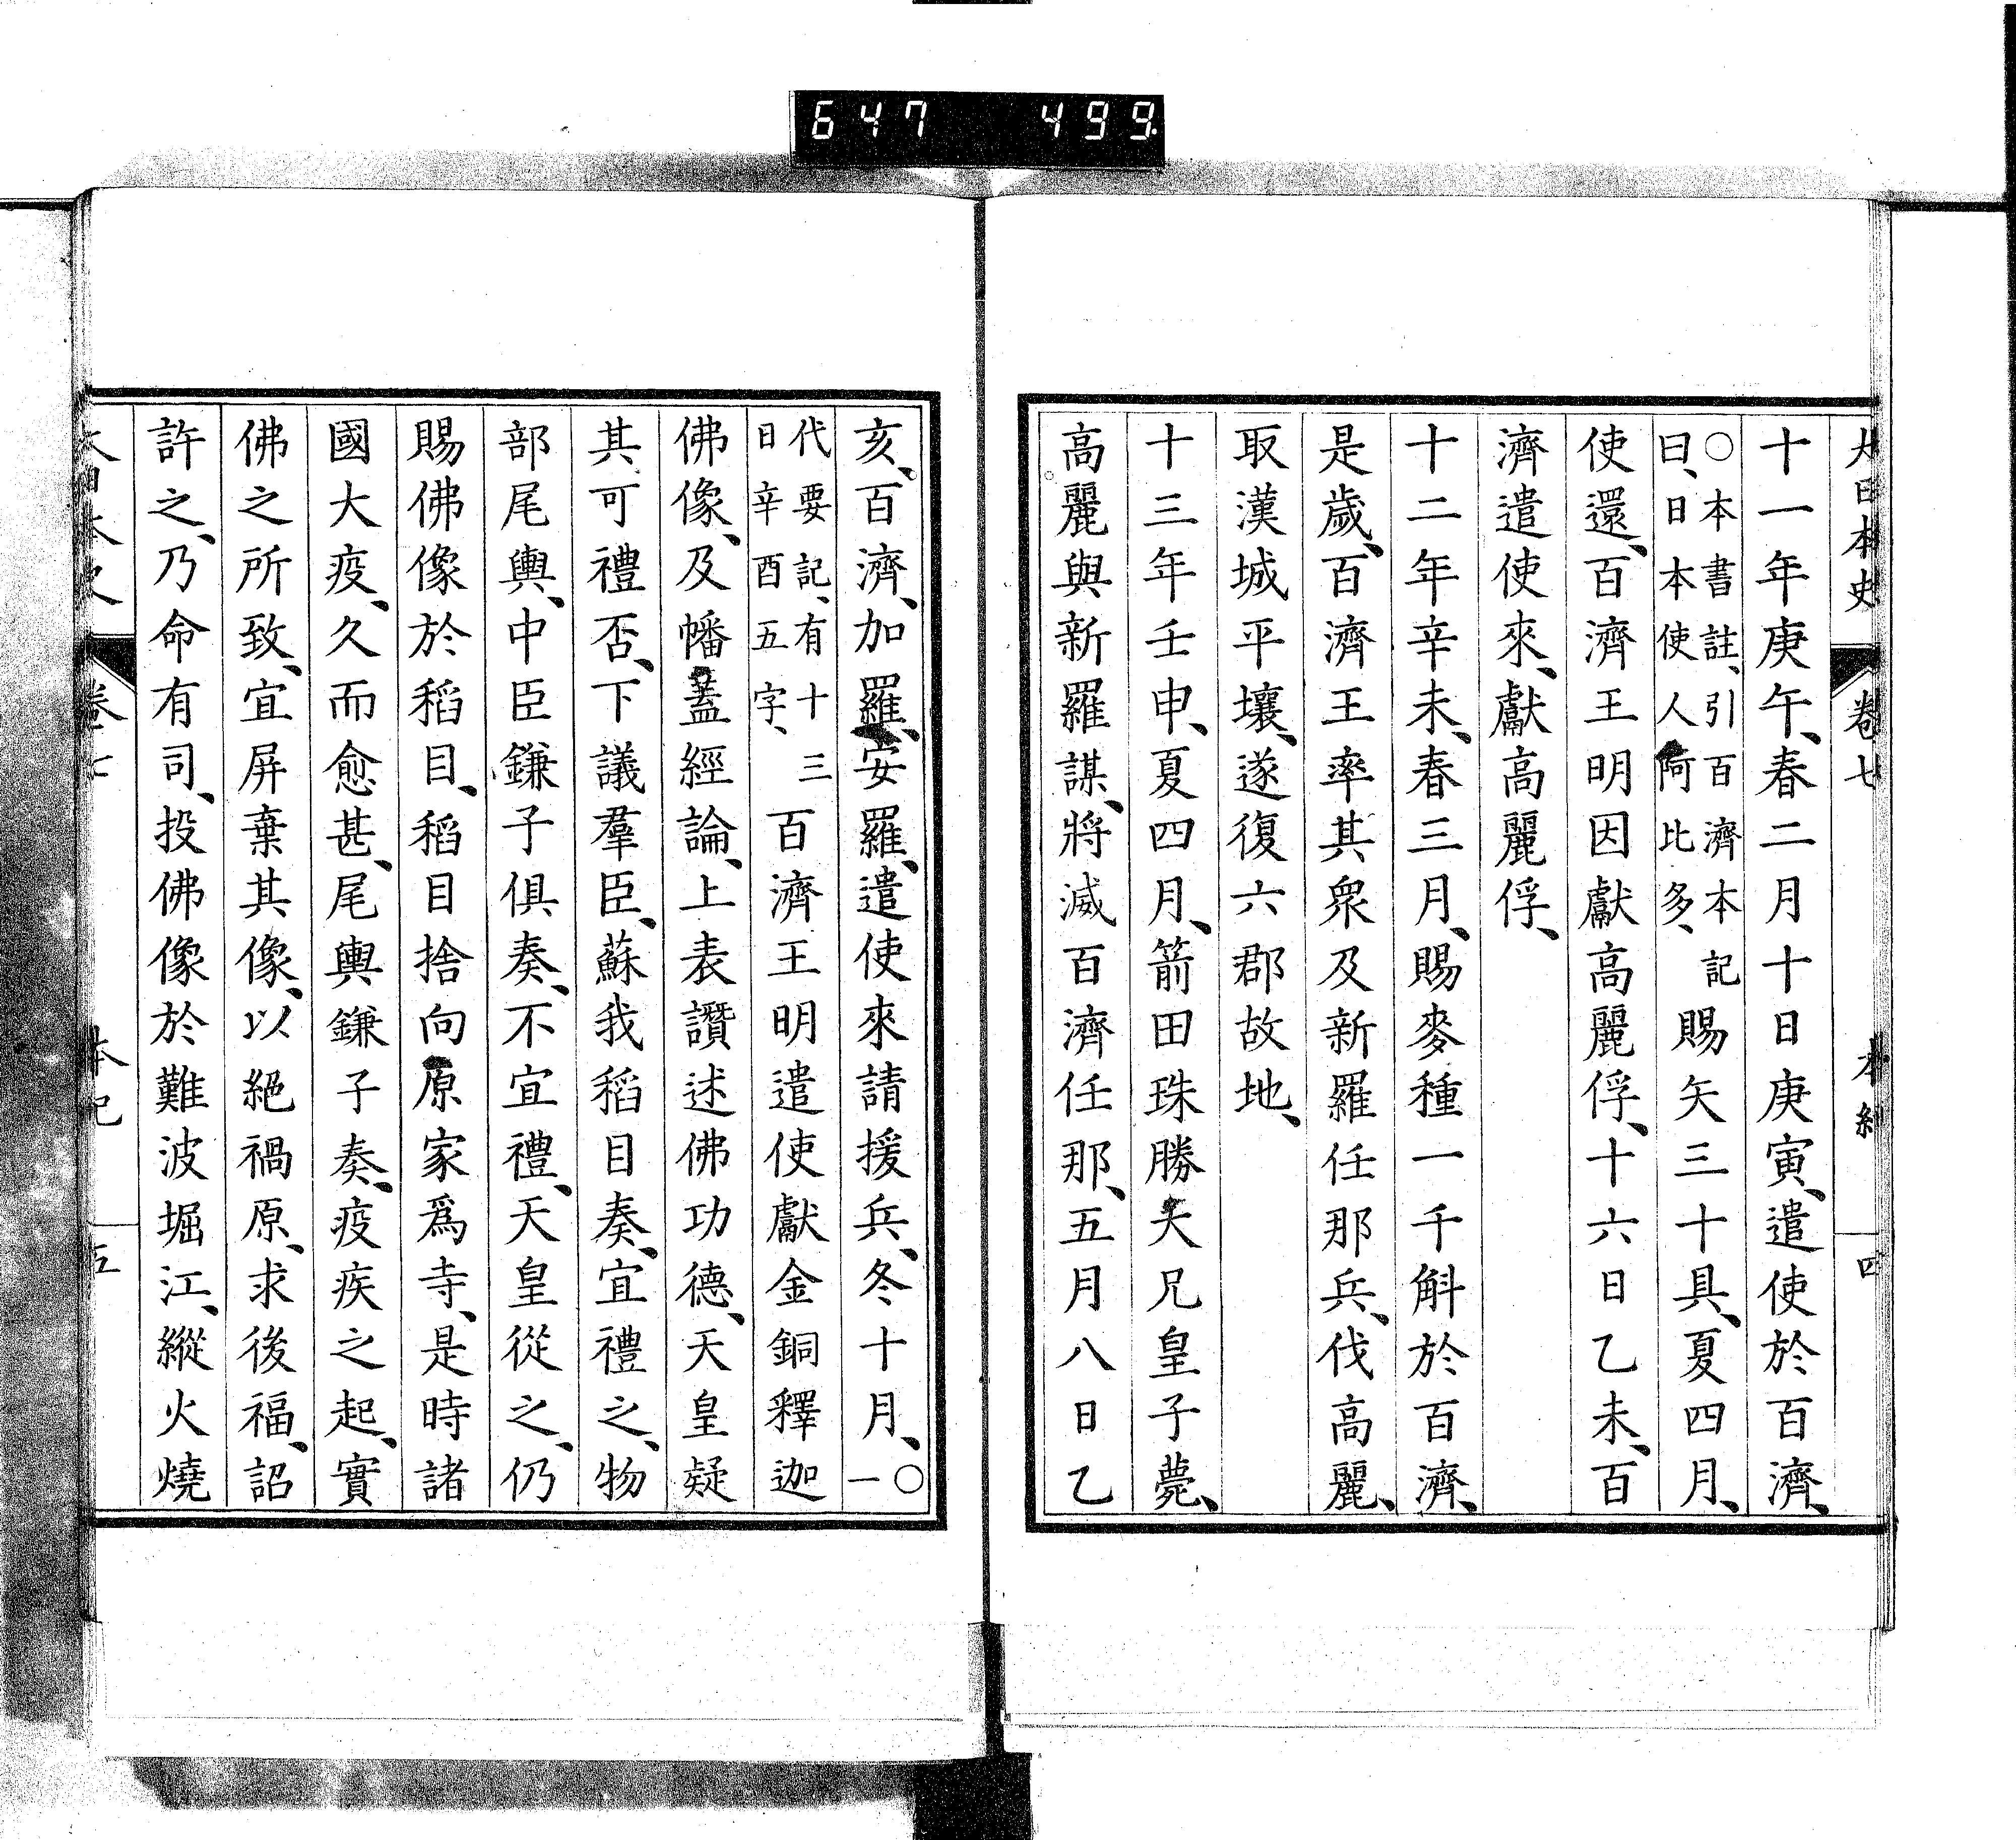 647 499
大日本史 卷七 本紀 四
十一年庚午、春二月十日庚寅、遣使於百濟、
○本書註、引百濟本記
曰、日本使人阿比多、
賜矢三十具、夏四月、
使還、百濟王明因獻高麗俘、十六日乙未、百
濟遣使來、獻高麗俘、
十二年辛未、春三月、賜麥種一千斛於百濟、
是歲、百濟王率其衆及新羅任那兵、伐高麗、
取漢城平壤、遂復六郡故地、
十三年壬申、夏四月、箭田珠勝大兄皇子薨、
高麗與新羅謀、將滅百濟任那、五月八日乙
亥、百濟、加羅、安羅、遣使來請援兵、冬十月、○一
代要記、有十三
日辛酉五字、
百濟王明遣使獻金銅釋迦
佛像、及幡蓋經論、上表讚述佛功德、天皇疑
其可禮否、下議羣臣、蘇我稻目奏、宜禮之、物
部尾輿、中臣鎌子俱奏、不宜禮、天皇從之、仍
賜佛像於稻目、稻目捨向原家爲寺、是時諸
國大疫、久而愈甚、尾輿鎌子奏、疫疾之起、實
佛之所致、宜屏棄其像、以絕禍原、求後福、詔
許之、乃命有司、投佛像於難波堀江、縱火燒
大日本史 卷七 本紀 五